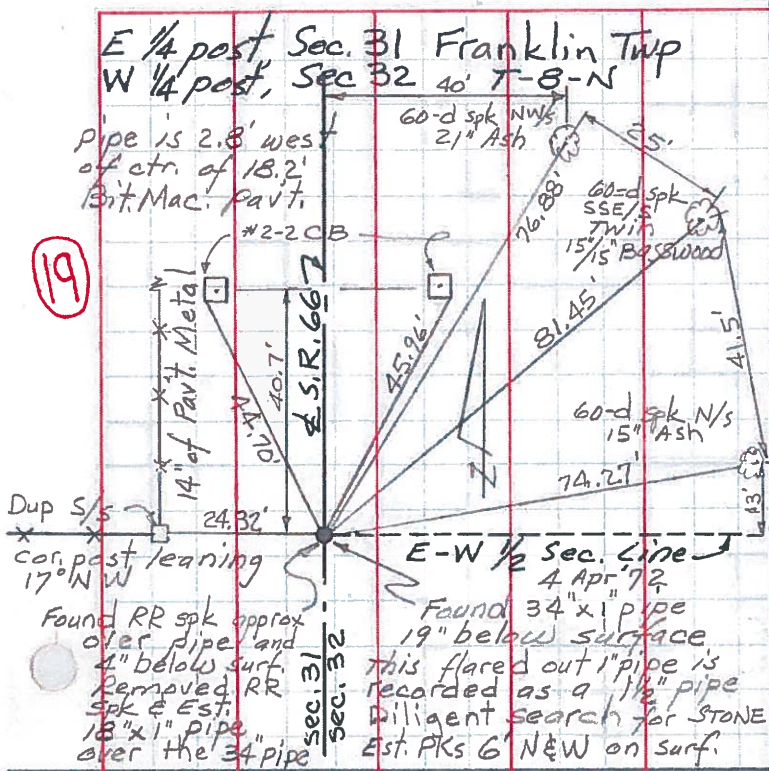 E 1/4 post, Sec. 31 Franklin Twp
W 1/4 post, Sec 32 T-8-N
40'
60-d spk NW/s
21" Ash
25'
pipe is 2.8' west
of ctr. of 18.2'
Bit. Mac. Pav't.
76.88'
60-d spk
SSE/s
Twin
15"/15" Basswood
#2-2 CB
19
14" of Pav't. Metal
40.7'
44.70'
℄ S.R. 66
45.96'
81.45'
41.5'
N
60-d spk N/s
15" Ash
74.27'
13'
Dup S/s
24.32'
cor. post leaning
17° NW
E-W 1/2 Sec. Line
4 Apr '72
Found RR spk approx
over pipe and
4" below surf.
Removed RR
Spk & Est.
18" x 1" pipe
over the 34" pipe
sec. 31
sec. 32
Found 34" x 1" pipe
19" below surface
This flared out 1" pipe is
recorded as a 1 1/2" pipe
Diligent search for STONE
Est. PKs 6' N&W on surf.